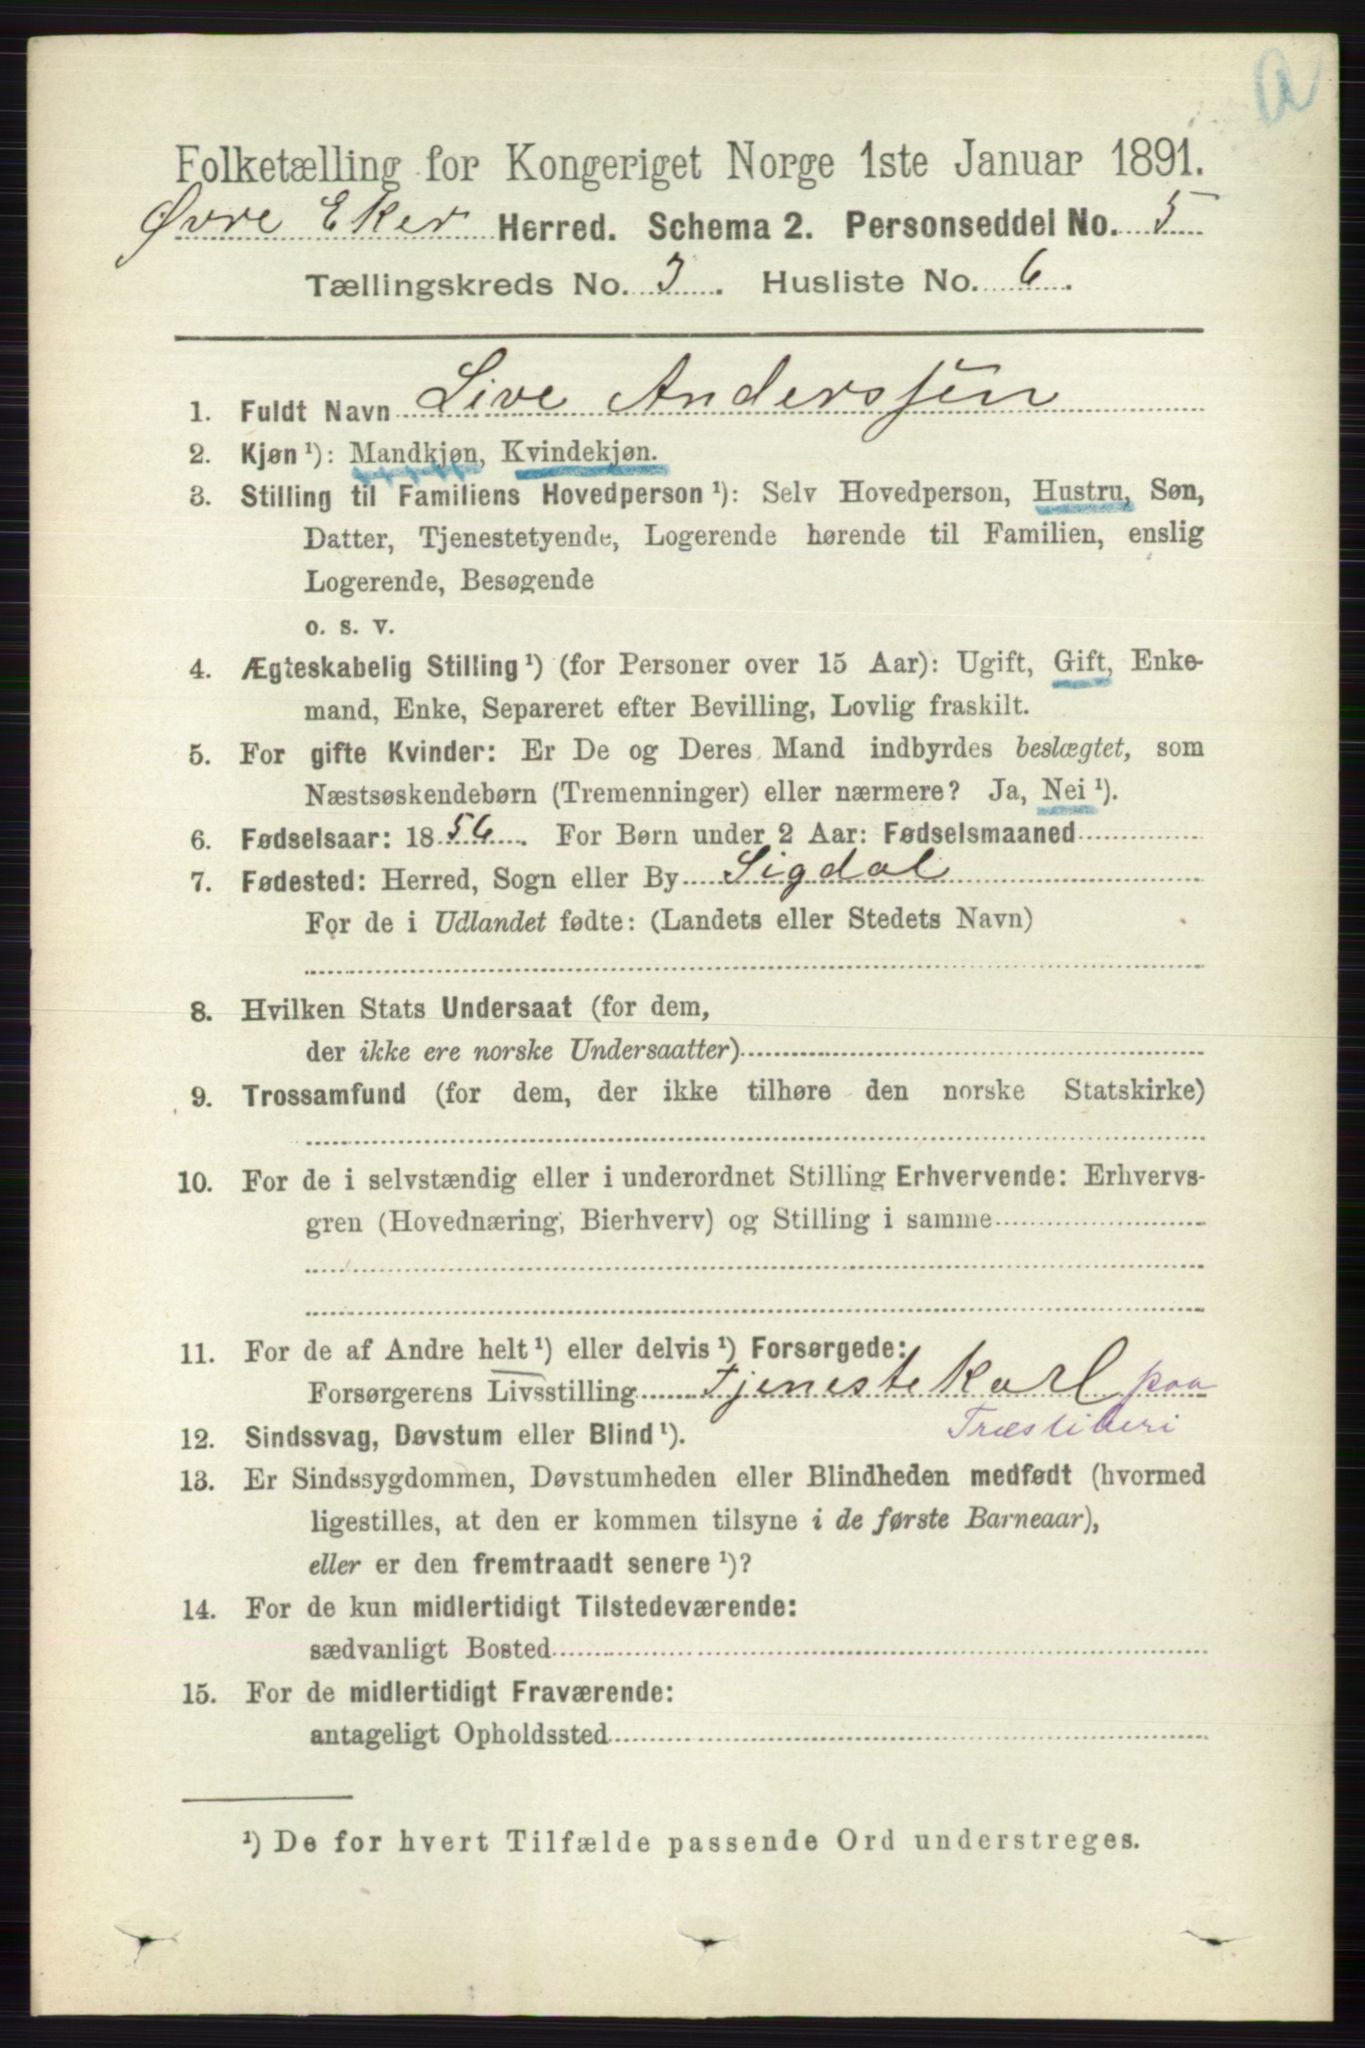 a
Folketælling for Kongeriget Norge 1ste Januar 1891.
Øvre Eker Herred. Schema 2. Personseddel No. 5
Tællingskreds No. 3. Husliste No. 6.
1. Fuldt Navn Live Anderssen
2. Kjøn ¹): Mandkjøn, Kvindekjøn.
3. Stilling til Familiens Hovedperson ¹): Selv Hovedperson, Hustru, Søn,
Datter, Tjenestetyende, Logerende hørende til Familien, enslig
Logerende, Besøgende
o. s. v.
4. Ægteskabelig Stilling ¹) (for Personer over 15 Aar): Ugift, Gift, Enke-
mand, Enke, Separeret efter Bevilling, Lovlig fraskilt.
5. For gifte Kvinder: Er De og Deres Mand indbyrdes beslægtet, som
Næstsøskendebørn (Tremenninger) eller nærmere? Ja, Nei ¹).
6. Fødselsaar: 1856. For Børn under 2 Aar: Fødselsmaaned
7. Fødested: Herred, Sogn eller By Sigdal
For de i Udlandet fødte: (Landets eller Stedets Navn)
8. Hvilken Stats Undersaat (for dem,
der ikke ere norske Undersaatter)
9. Trossamfund (for dem, der ikke tilhøre den norske Statskirke)
10. For de i selvstændig eller i underordnet Stilling Erhvervende: Erhvervs-
gren (Hovednæring, Bierhverv) og Stilling i samme
11. For de af Andre helt ¹) eller delvis ¹) Forsørgede:
Forsørgerens Livsstilling Tjenestekarl paa
Træsliberi
12. Sindssvag, Døvstum eller Blind ¹).
13. Er Sindssygdommen, Døvstumheden eller Blindheden medfødt (hvormed
ligestilles, at den er kommen tilsyne i de første Barneaar),
eller er den fremtraadt senere ¹)?
14. For de kun midlertidigt Tilstedeværende:
sædvanligt Bosted
15. For de midlertidigt Fraværende:
antageligt Opholdssted
¹) De for hvert Tilfælde passende Ord understreges.